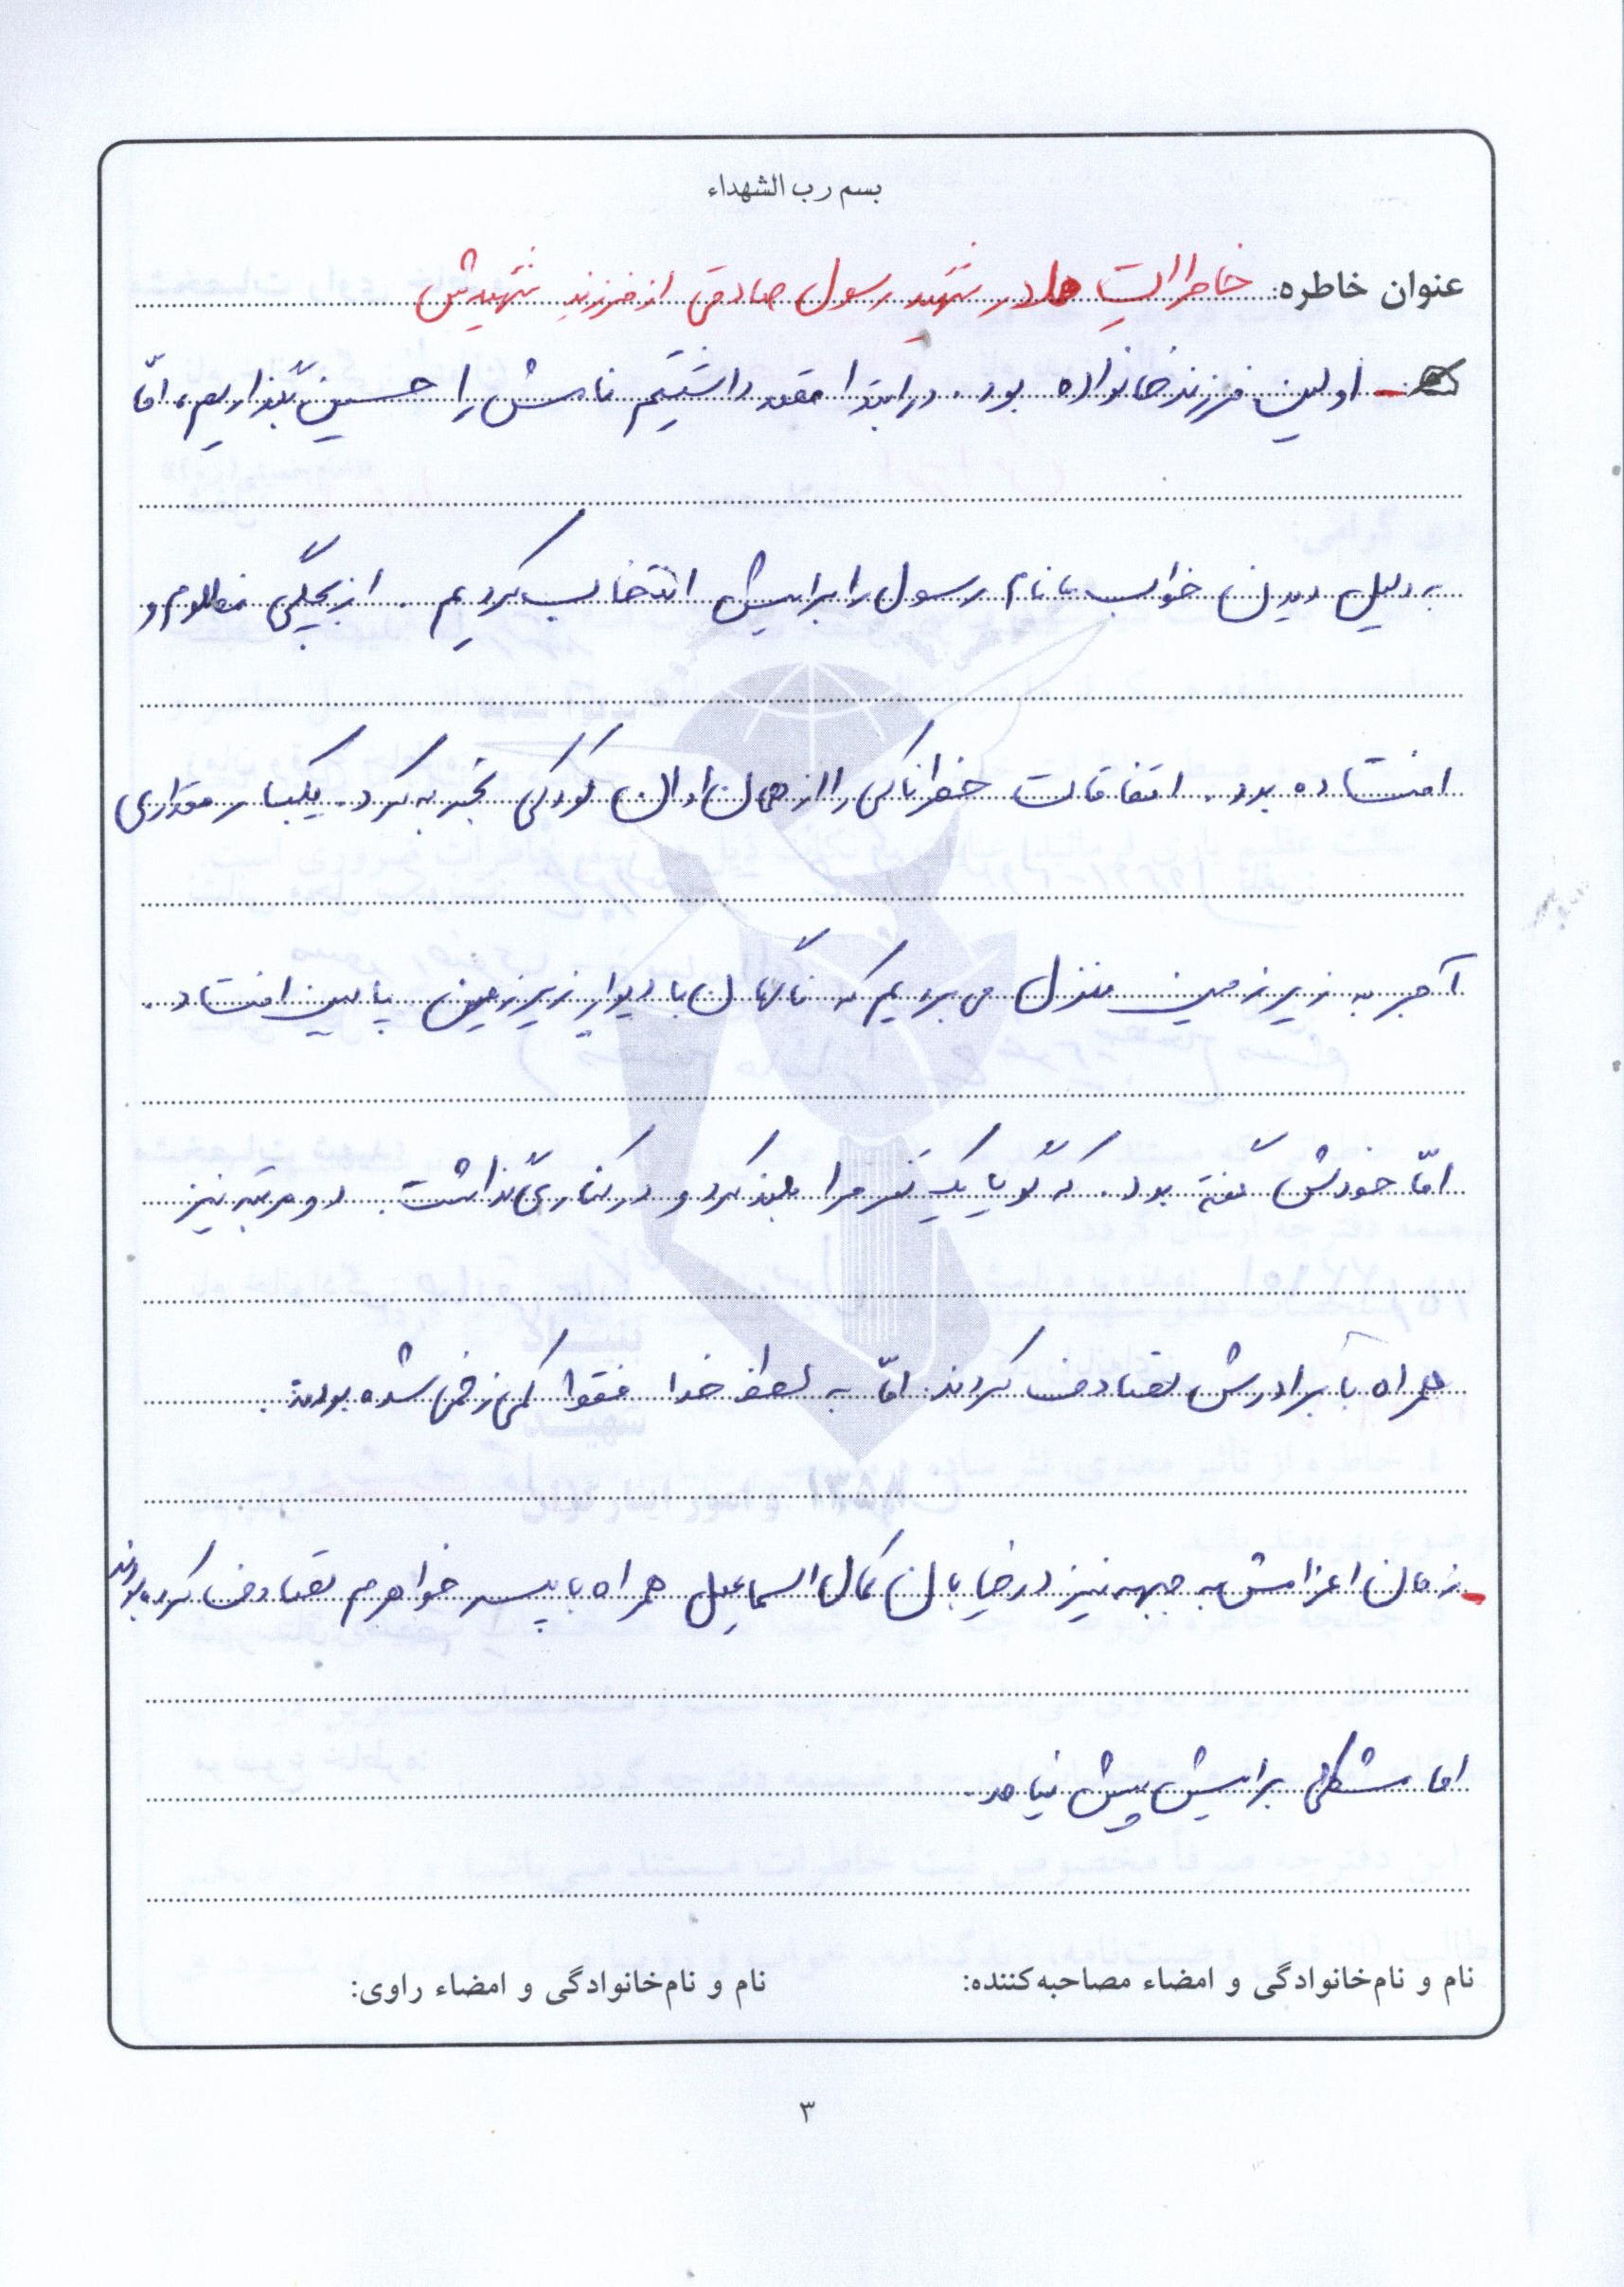 بسم رب الشهداء
عنوان خاطره: خاطرات مادر شهید رسول صادقی از فرزند شهیدش
ـ اولین فرزند خانواده بود. در ابتدا قصد داشتیم نامش را حسین بگذاریم، امّا
به دلیل دیدن خواب نام رسول را برایش انتخاب کردیم. از بچگی مظلوم و
افتاده بود. اتفاقات خطرناکی را از همان اوان کودکی تجربه کرد. یکبار مقداری
آجر به زیرزمین منزل می بردیم که ناگهان با دیوار زیرزمین پایین افتاد.
امّا خودش گفته بود. که گویا یک نفر مرا بلند کرد و در کناری گذاشت. دو مرتبه نیز
همراه با برادرش تصادف کردند. امّا به لطف خدا فقط کمی زخمی شده بودند.
ـ زمان اعزامش به جبهه نیز در خیابان کمال اسماعیل همراه با پسر خواهرم تصادف کرده بودند
اما مشکلی برایش پیش نیامد.
نام و نام‌خانوادگی و امضاء مصاحبه‌کننده: نام و نام‌خانوادگی و امضاء راوی:
۳